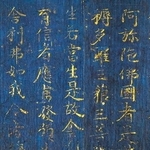 阿弥陀佛國者是
耨多羅三藐三
生若當生是故舍
有信者應當發願
舍利弗如我今者